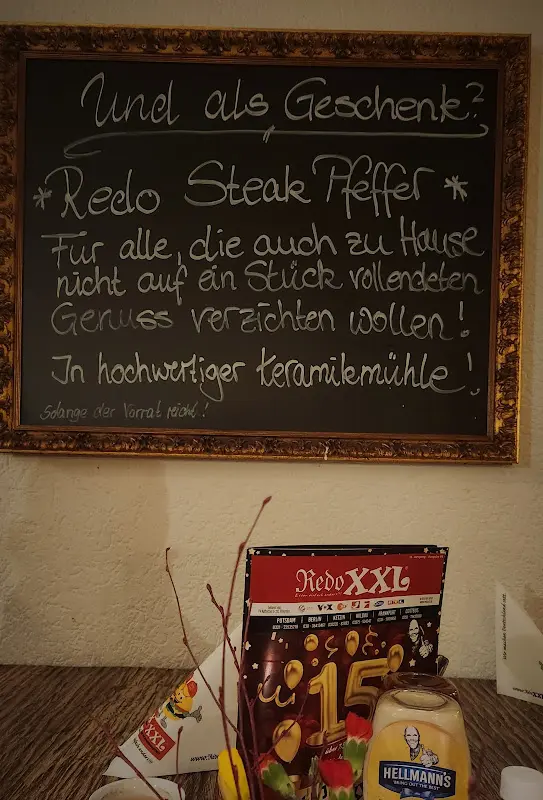 Und als Geschenk?
*Redo Steak Pfeffer*
Für alle, die auch zu Hause
nicht auf ein Stück vollendeten
Genuss verzichten wollen!
In hochwertiger Keramikmühle!
Solange der Vorrat reicht!
Redo XXL
VOX
POTSDAM | BERLIN | KETZIN | WILDAU | FRANKFURT | COTTBUS
15
XXL
HELLMANN'S
"BRING OUT THE BEST"